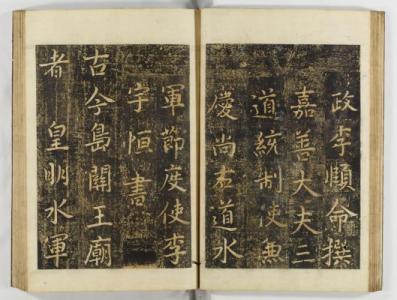 政李頤命撰
嘉善大夫三
道統制使兼
慶尚右道水
軍節度使李
宇恒書
古今島關王廟
者 皇明水軍